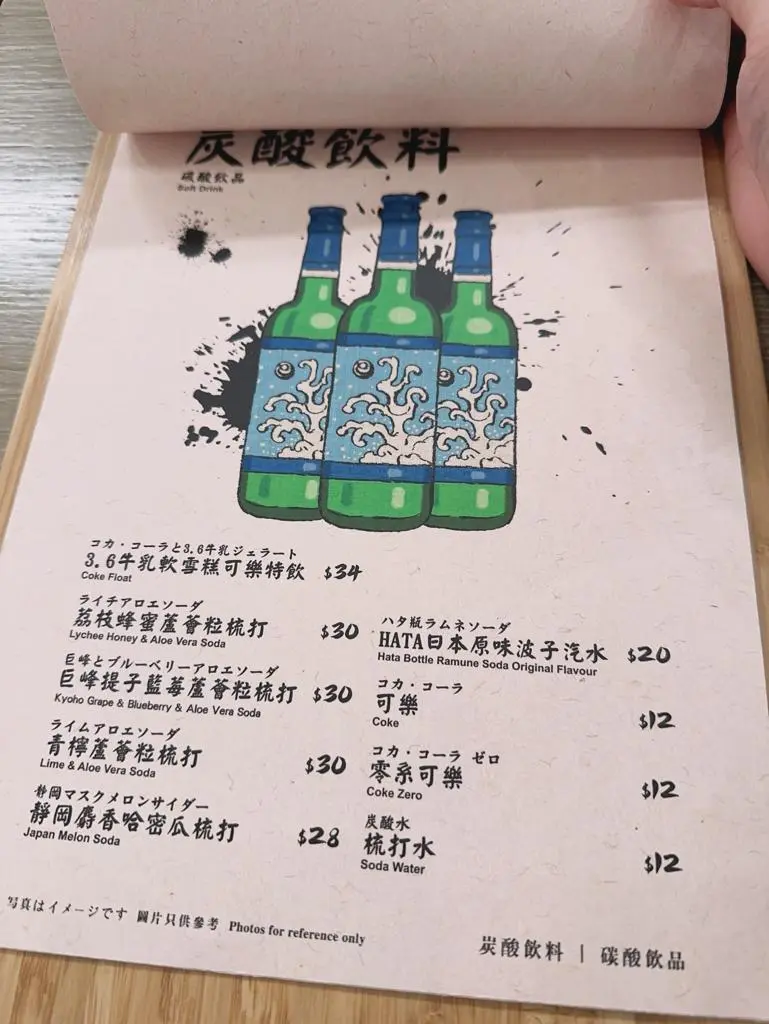 炭酸飲料
碳酸飲品
Soft Drink
コカ・コーラと3.6牛乳ジェラート
3.6牛乳軟雪糕可樂特飲 $34
Coke Float
ライチアロエソーダ
荔枝蜂蜜蘆薈粒梳打 $30
Lychee Honey & Aloe Vera Soda
巨峰とブルーベリーアロエソーダ
巨峰提子藍莓蘆薈粒梳打 $30
Kyoho Grape & Blueberry & Aloe Vera Soda
ライムアロエソーダ
青檸蘆薈粒梳打 $30
Lime & Aloe Vera Soda
静岡マスクメロンサイダー
靜岡麝香哈密瓜梳打 $28
Japan Melon Soda
ハタ瓶ラムネソーダ
HATA日本原味波子汽水 $20
Hata Bottle Ramune Soda Original Flavour
コカ・コーラ
可樂 $12
Coke
コカ・コーラ ゼロ
零系可樂 $12
Coke Zero
炭酸水
梳打水 $12
Soda Water
写真はイメージです 圖片只供參考 Photos for reference only
炭酸飲料 | 碳酸飲品